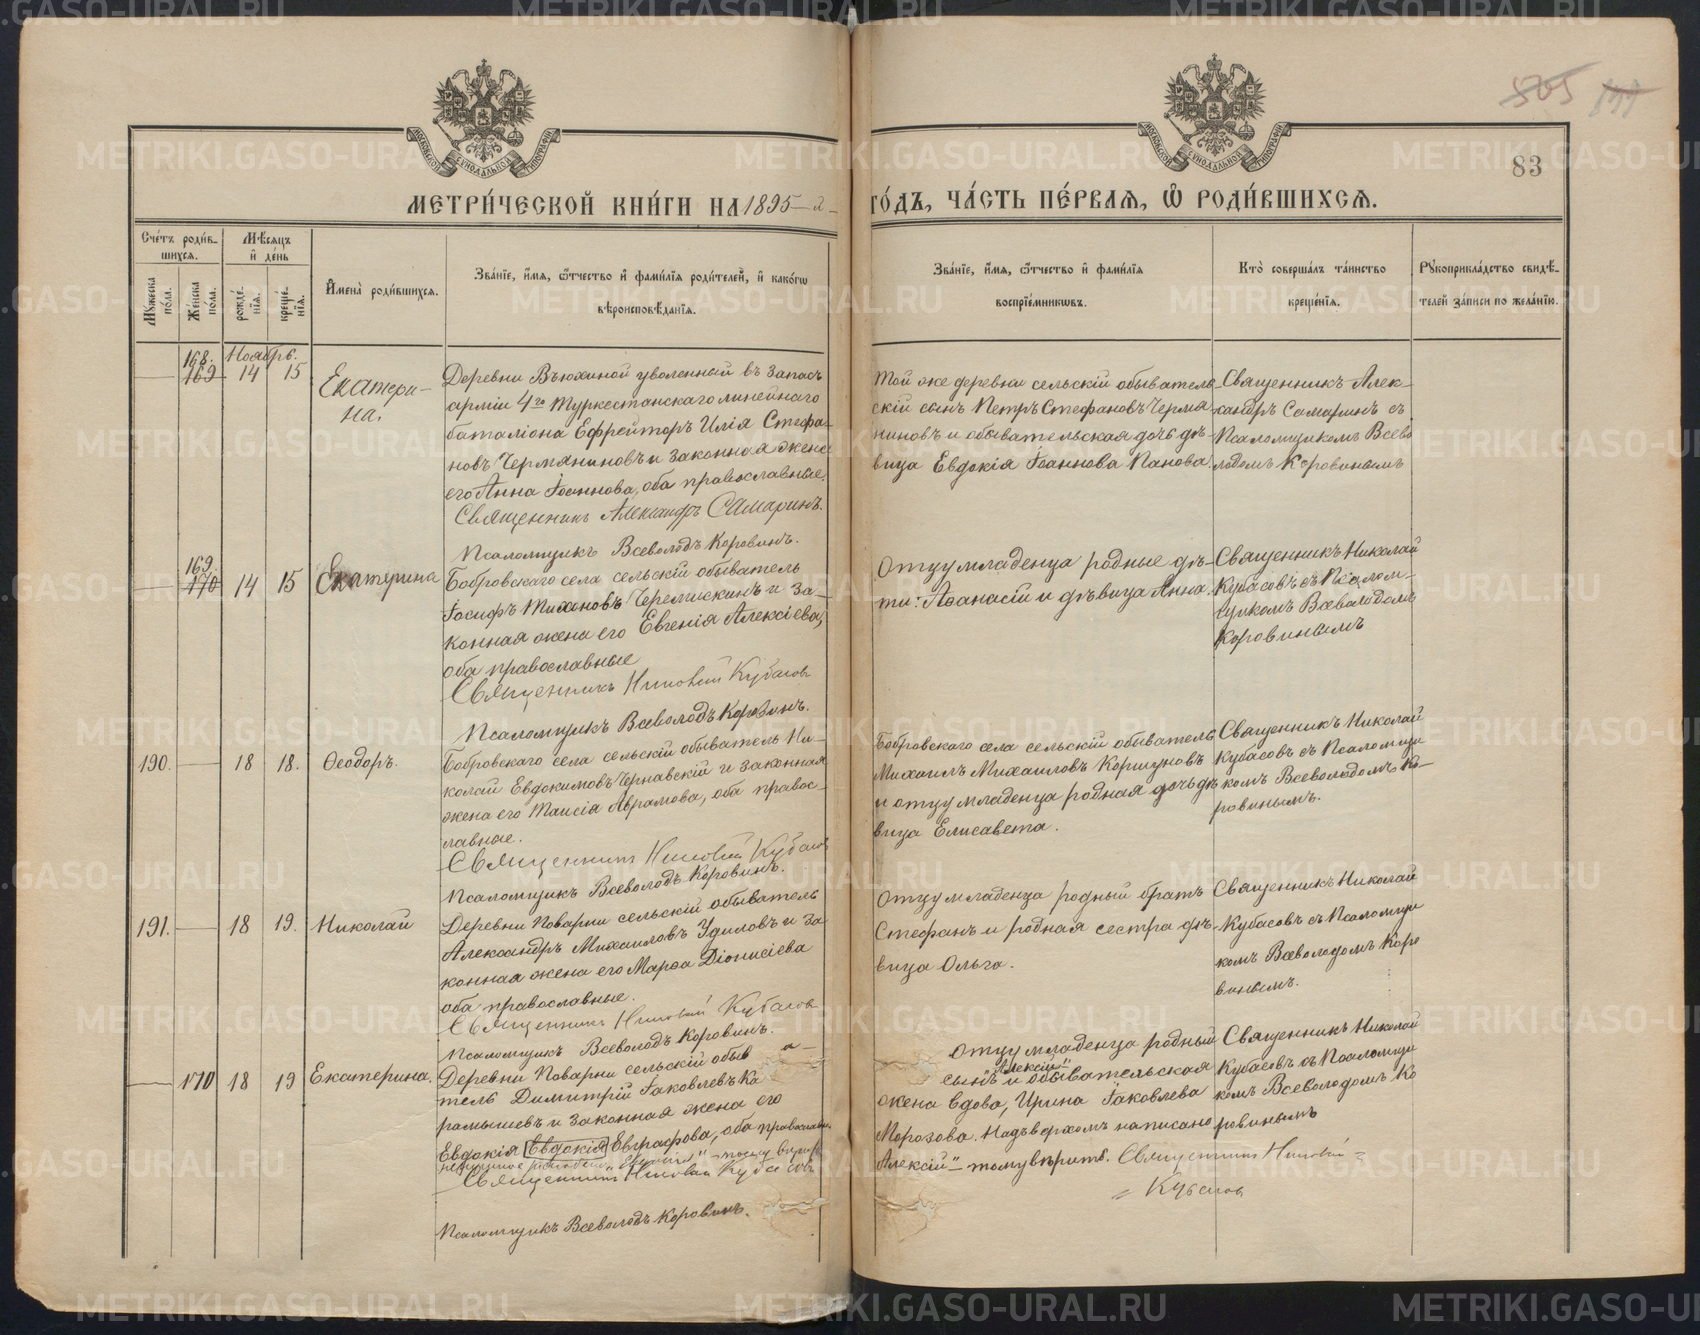 МЕТРИ́ЧЕСКОЙ КНИ́ГИ НА 1895-й
ГО́ДЪ, ЧА́СТЬ ПЕ́РВАѦ, Ѡ҆ РОДИ́ВШИХСѦ.
83
565
Сче́тъ роди́в-
шихся.
Мѣ́сяцъ
и҆ де́нь
Мꙋ́жеска
по́ла.
Же́нска
по́ла.
рожде́-
нїя.
креще́-
нїя.
И҆мена̀ роди́вшихся.
Зва́нїе, и҆́мя, ѻ҆́тчество и҆ фами́лїя роди́телей, и҆ како́гѡ
вѣроисповѣ́данїя.
Зва́нїе, и҆́мя, ѻ҆́тчество и҆ фами́лїя
воспрїе́мникѡвъ.
Кто̀ соверша́лъ та́инство
креще́нїя.
Рꙋкоприкла́дство свидѣ́-
телей за́писи по жела́нїю.
168. Ноябрь.
169 14 15
Екатери-
на.
Деревни Вьюхиной уволенный въ запасъ
арміи 4го Туркестанскаго линейнаго
баталіона Ефрейторъ Илія Стефа-
новъ Чермяниновъ и законная жена
его Анна Іоаннова, оба православные.
Священникъ Александръ Самаринъ.
Псаломщикъ Всеволодъ Коровинъ.
Той же деревни сельскій обыватель-
скій сынъ Петръ Стефановъ Черма
ниновъ и обывательская дочь дѣ
вица Евдокія Іоаннова Панова.
Священникъ Алек-
сандръ Самаринъ съ
Псаломщикомъ Всево
лодомъ Коровинымъ
169.
170 14 15 Екатерина
Бобровскаго села сельскій обыватель
Іосифъ Тихановъ Черемискинъ и за-
конная жена его Евгенія Алексіева,
оба православные
Священникъ Николай Кубасовъ
Псаломщикъ Всеволодъ Коровинъ.
Отцу младенца родные дѣ-
ти: Аѳанасій и дѣвица Анна.
Священникъ Николай
Кубасовъ съ Псалом-
щикомъ Всеволодомъ
Коровинымъ
190. 18 18. Ѳеодоръ.
Бобровскаго села сельскій обыватель Ни-
колай Евдокимовъ Чернавскій и законная
жена его Таисія Аврамова, оба правос-
лавные.
Священникъ Николай Кубасовъ
Псаломщикъ Всеволодъ Коровинъ.
Бобровскаго села сельскій обыватель
Михаилъ Михаиловъ Коршуновъ
и отцу младенца родная дочь дѣ
вица Елисавета.
Священникъ Николай
Кубасовъ съ Псаломщи
комъ Всеволодомъ Ко-
ровинымъ.
191. 18 19. Николай
Деревни Поварни сельскій обыватель
Александръ Михаиловъ Удиловъ и за
конная жена его Марѳа Діонисіева
оба православные.
Священникъ Николай Кубасовъ
Псаломщикъ Всеволодъ Коровинъ.
Отцу младенца родный братъ
Стефанъ и родная сестра дѣ-
вица Ольга.
Священникъ Николай
Кубасовъ съ Псаломщи
комъ Всеволодомъ Коро
винымъ.
170 18 19 Екатерина.
Деревни Поварни сельскій обыв а-
тель Димитрій Іаковлевъ Ка
рамышевъ и законная жена его
Евдокія Евдокія Евграфова, оба православные
тому вѣрить
Священникъ Николай Кубасовъ
Псаломщикъ Всеволодъ Коровинъ.
Отцу младенца родный
"Алексій"
сынъ и обывательская
жена вдова, Ирина Іаковлева
Морозова. Надъ верхомъ написано
"Алексій" - тому вѣрить. Священникъ Николай
Кубасовъ
Священникъ Николай
Кубасовъ съ Псаломщи
комъ Всеволодомъ Ко
ровинымъ
METRIKI.GASO-URAL.RU